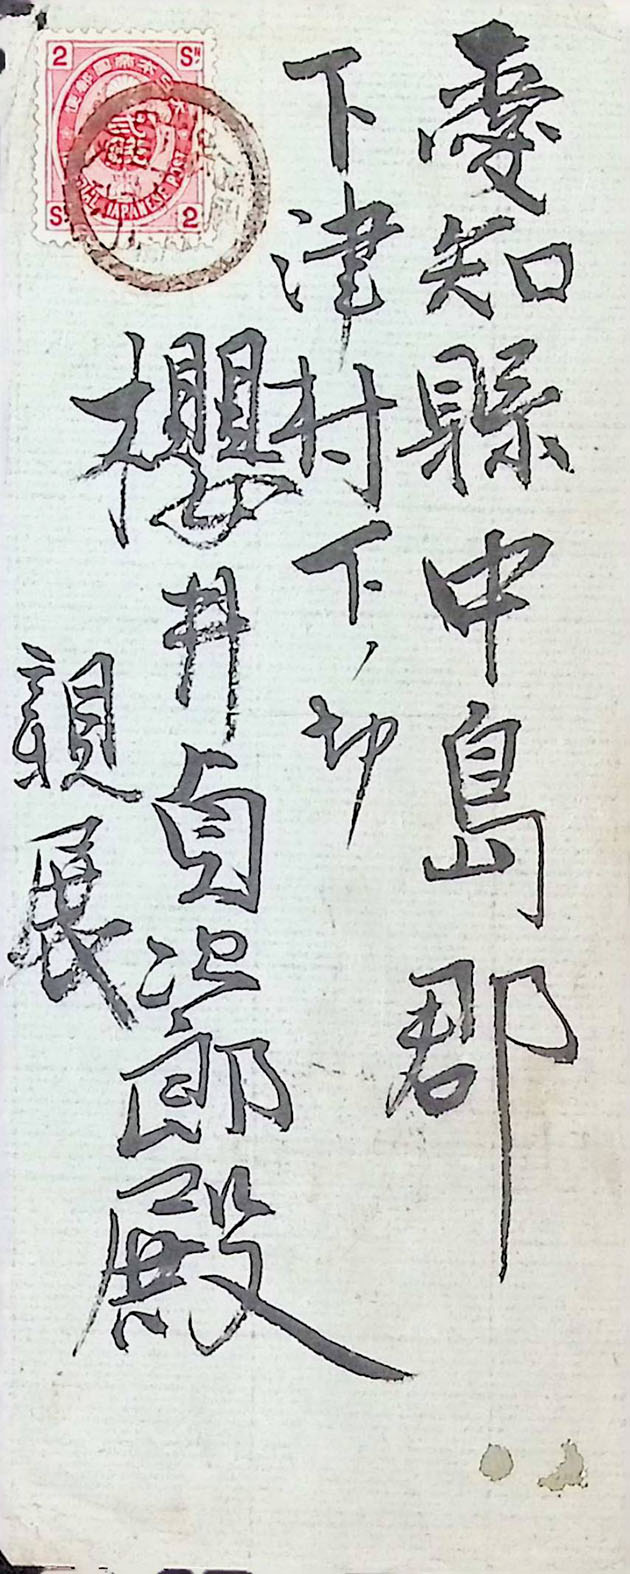 愛知縣中島郡
下津村下ノ切
櫻井貞次郎殿
親展
2 Sn
Sn 2
大日本帝國郵便
貳錢
IMPERIAL JAPANESE POST